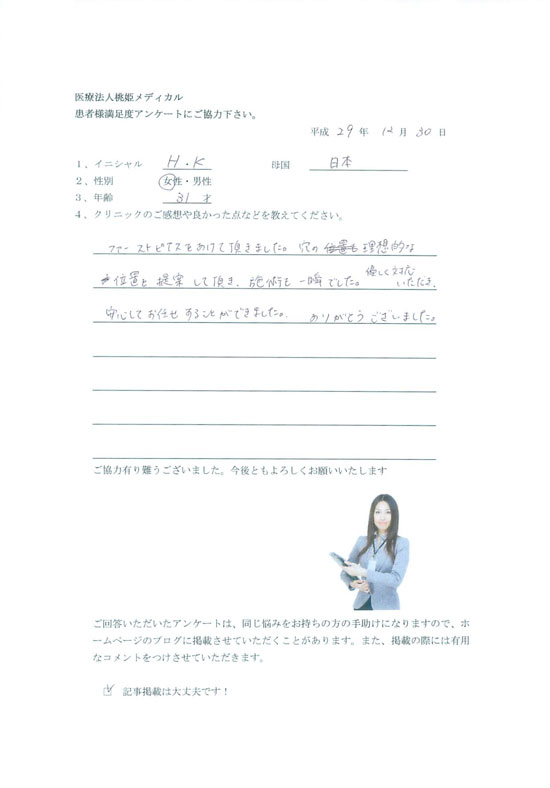 医療法人桃姫メディカル
患者様満足度アンケートにご協力下さい。
平成 29 年 12 月 30 日
1、イニシャル H・K 母国 日本
2、性別 女性・男性
3、年齢 31 才
4、クリニックのご感想や良かった点などを教えてください。
ファーストピアスをあけて頂きました。穴の 理想的な
位置を 提案 して頂き、施術も 一瞬でした。優しく対応いただき、
安心して お任せ することができました。 ありがとう ございました。
ご協力有り難うございました。今後ともよろしくお願いいたします
ご回答いただいたアンケートは、同じ悩みをお持ちの方の手助けになりますので、ホ
ームページのブログに掲載させていただくことがあります。また、掲載の際には有用
なコメントをつけさせていただきます。
☑ 記事掲載は大丈夫です！